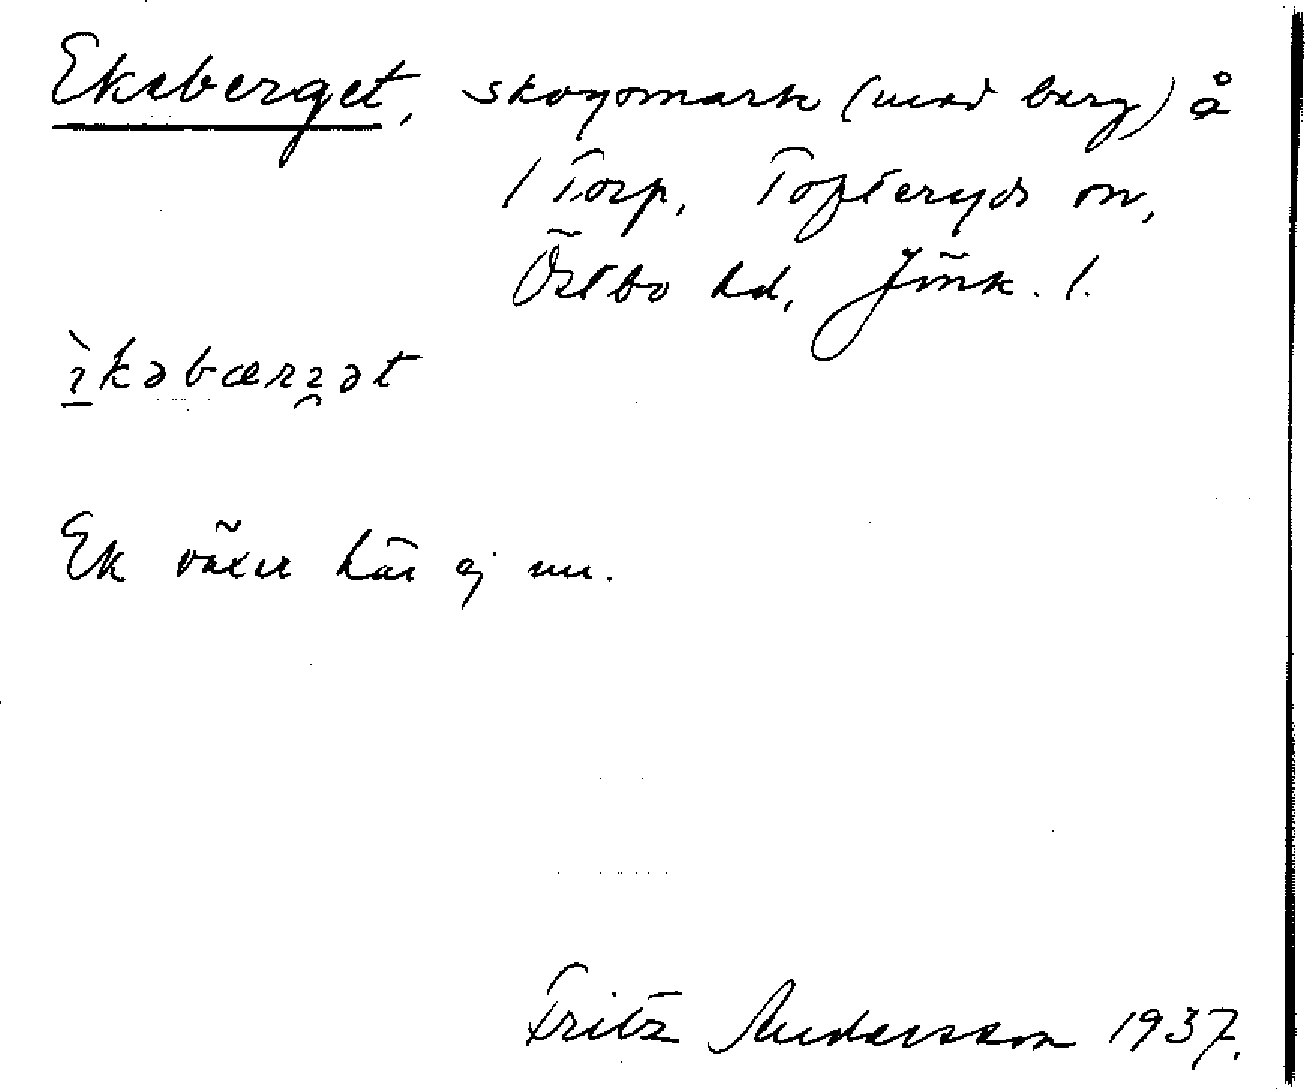 Ekeberget, skogsmark (med berg) å
1 Torp, Tofteryds sn,
Östbo hd, Jönk. l.
ìkəbærʒət
Ek växer här ej nu.
Fritz Andersson 1937.